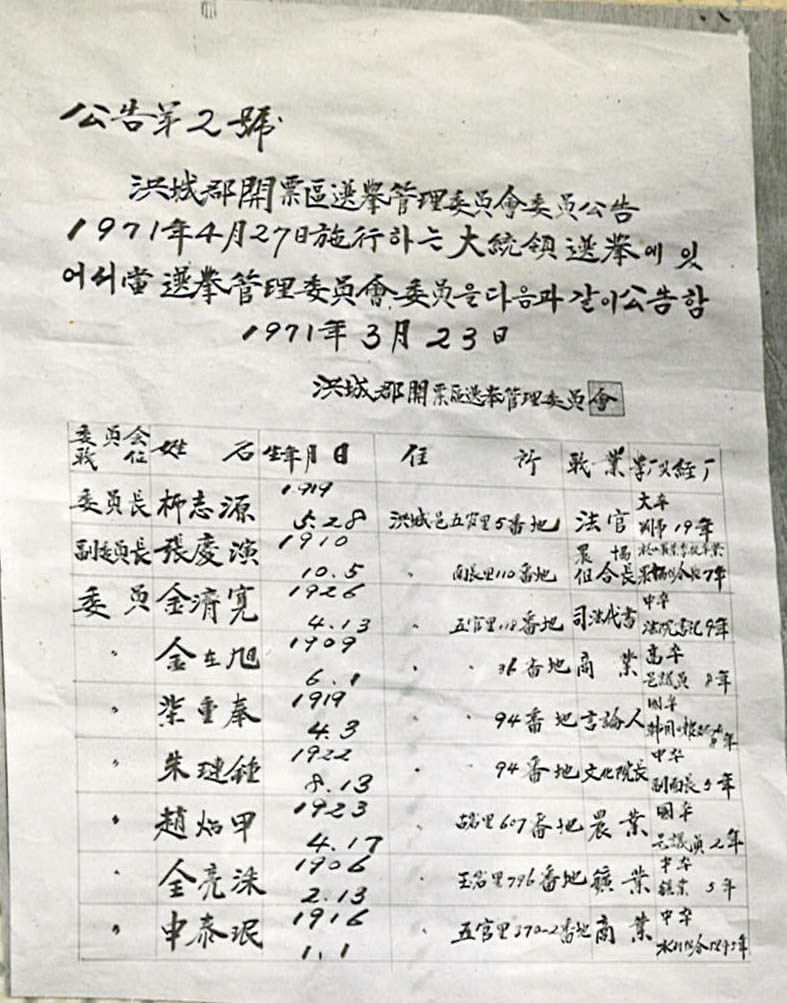 公告第2號
洪城郡開票區選擧管理委員會委員公告
1971年4月27日施行하는 大統領 選擧에 있
어서當 選擧管理委員會委員을다음과 같이公告함
1971年 3月 23日
洪城郡開票區選擧管理委員會
委員会職位 姓名 生年月日 住所 職業 学厂又経厂
委員長 柳志源 1919 5.28 洪城邑五官里5番地 法官 大卒 19年
副委員長 張慶演 1910 10.5 南長里110番地 組合長 7年
委員 金濟寬 1926 4.13 五官里118番地 司法代書 中卒 法院書記9年
〃 金在旭 1909 6.1 〃 〃 36番地 商業 高卒 邑議員 8年
〃 1919 4.3 〃 〃 94番地 言論人 國卒 8年
〃 朱璉鍾 1922 8.13 〃 〃 94番地 文化院長 中卒 副面長5年
〃 趙炳甲 1923 4.17 〃 607番地 農業 國卒 邑議員2年
〃 全亮洙 1906 2.13 〃 796番地 鑛業 中卒 鑛業 5年
〃 申泰珉 1916 1.1 〃 五官里370-2番地 商業 中卒